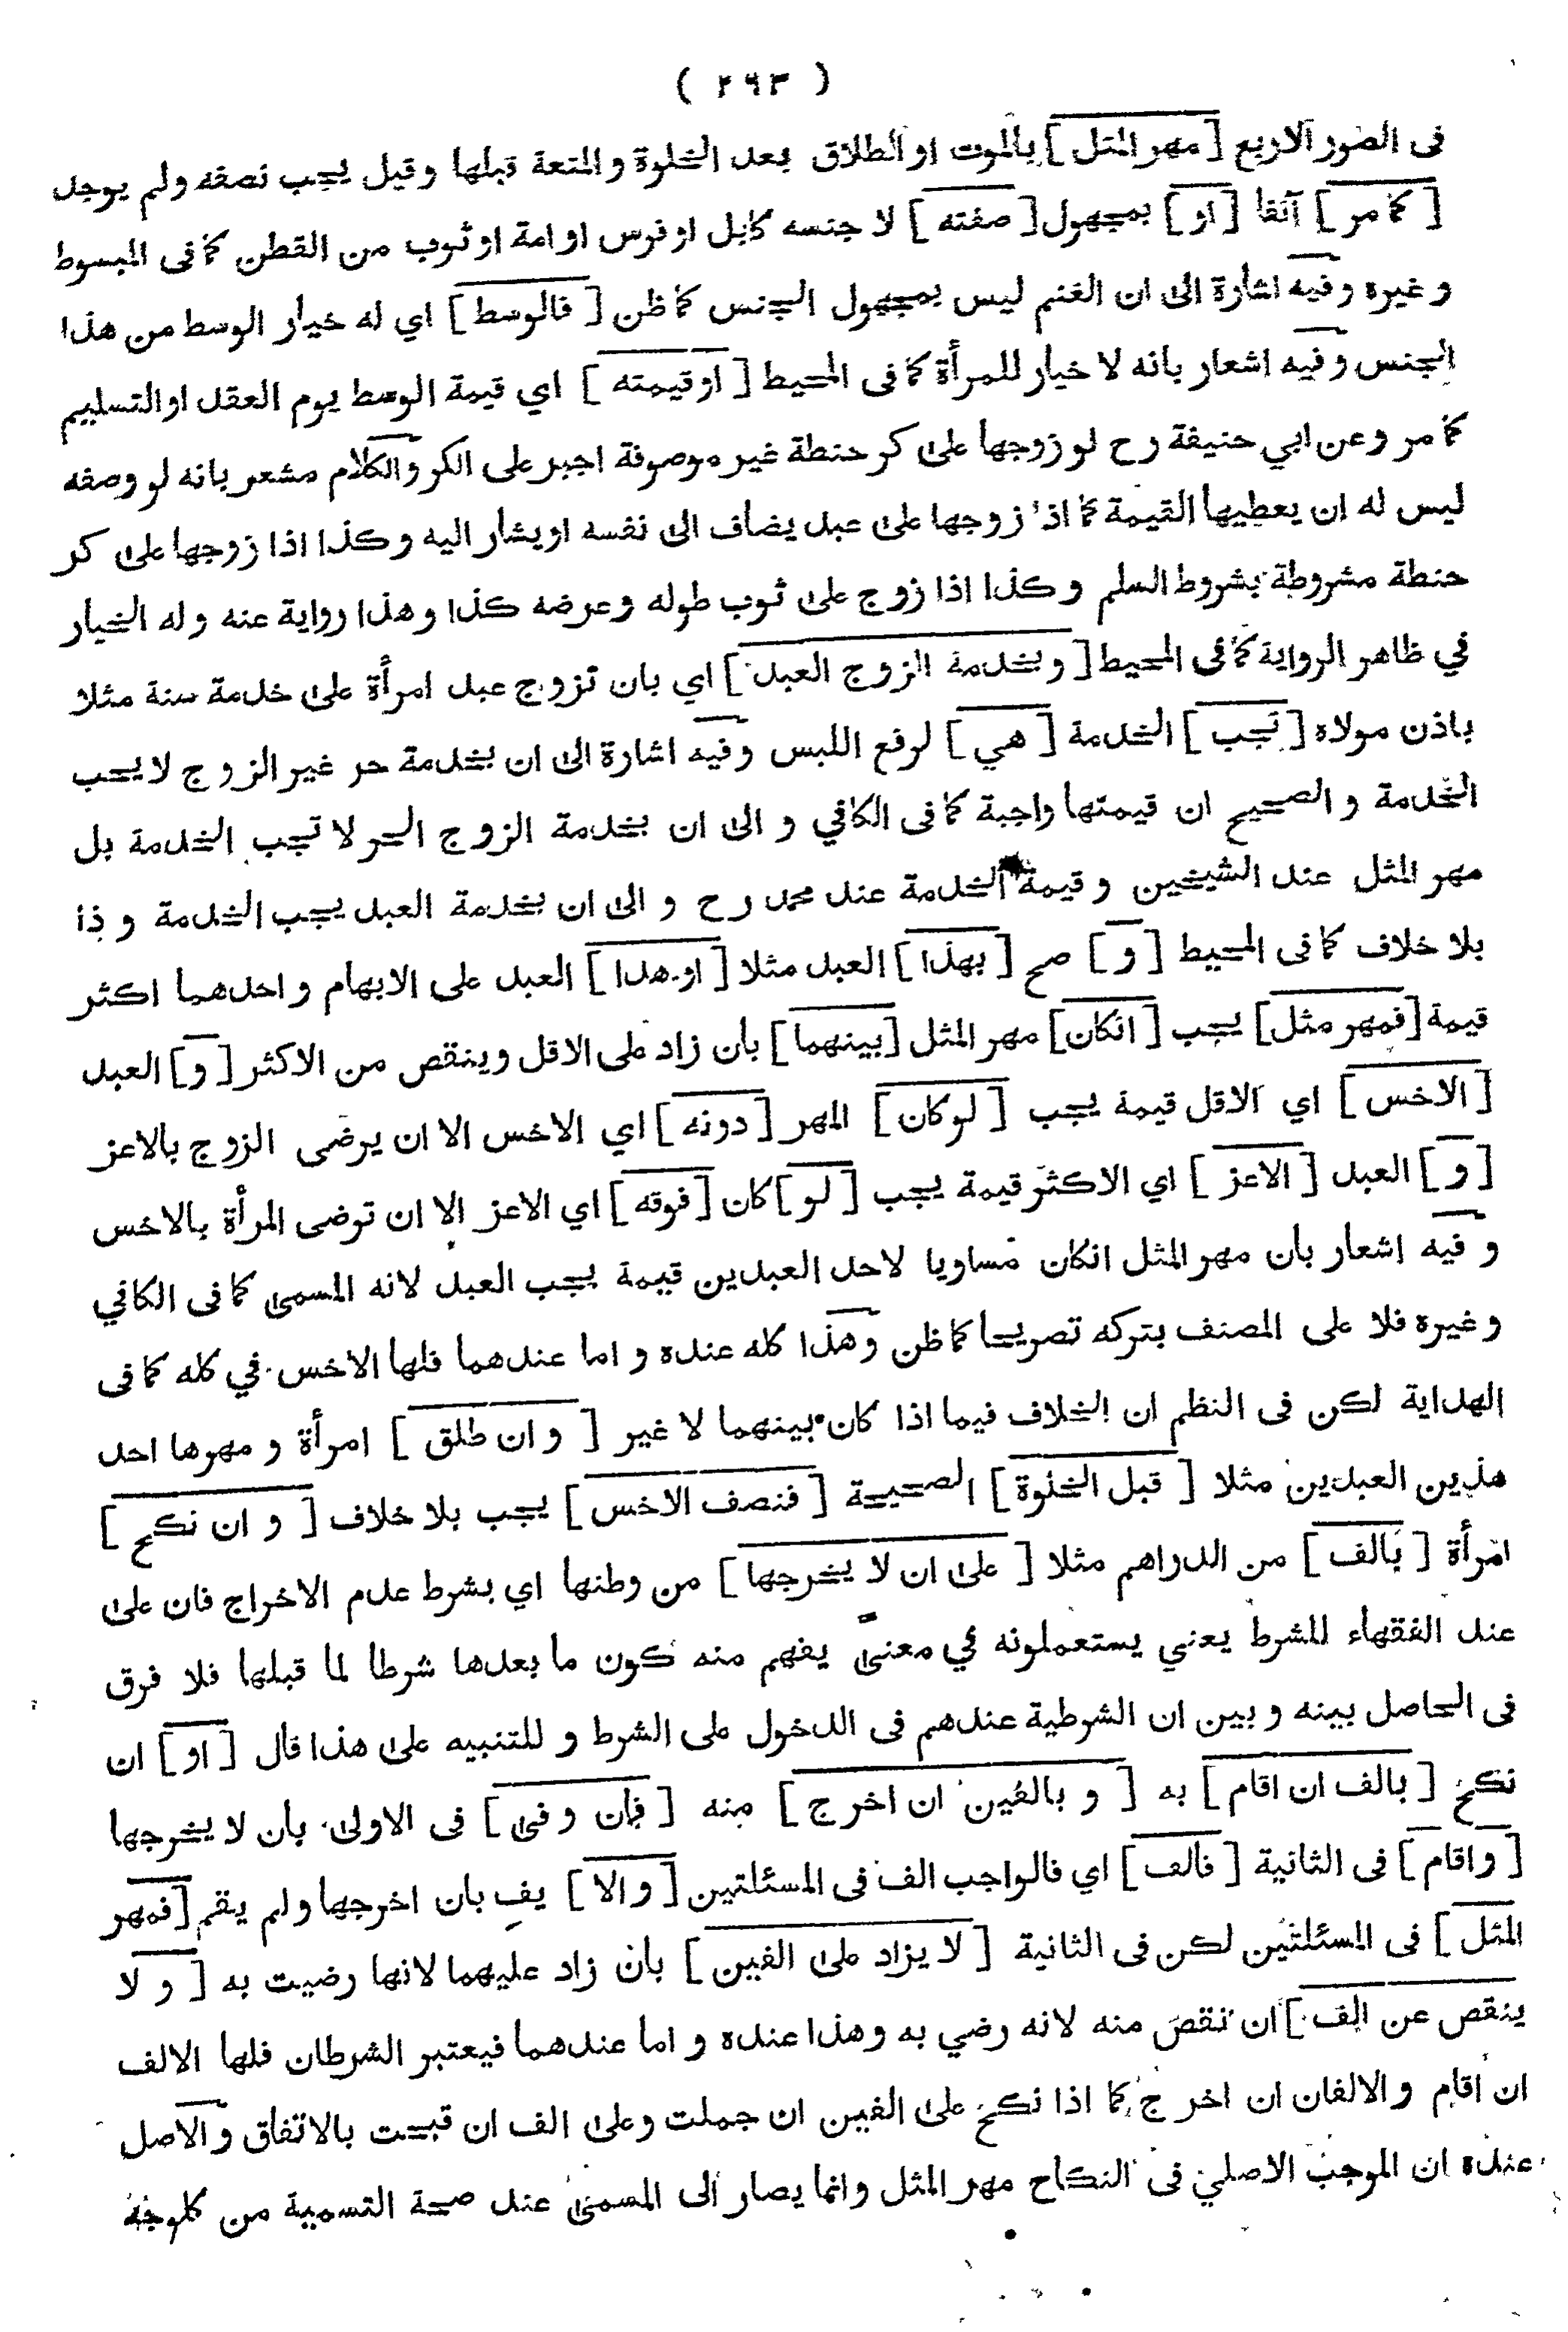 ( ٢٦٣ )
فى الصور الاربع [ مهر المثل ] بالموت او الطلاق بعد الخلوة و المتعة قبلها وقيل يجب نصفه ولم يوجد
[ كما مر ] آنفا [ او ] بمجهول [ صفته ] لا جنسه كابل او فرس او امة او ثوب من القطن كما فى المبسوط
و غيره و فيه اشارة الى ان الغنم ليس بمجهول الجنس كما ظن [ فالوسط ] اي له خيار الوسط من هذا
الجنس و فيه اشعار بانه لا خيار للمرأة كما فى المحيط [ او قيمته ] اي قيمة الوسط يوم العقد او التسليم
كما مر وعن ابي حنيفة رح لو زوجها على كر حنطة غير موصوفة اجبر على الكر والكلام مشعر بانه لو وصفه
ليس له ان يعطيها القيمة كما اذا زوجها على عبد يضاف الى نفسه او يشار اليه وكذا اذا زوجها على كر
حنطة مشروطة بشروط السلم وكذا اذا زوج على ثوب طوله وعرضه كذا وهذا رواية عنه وله الخيار
في ظاهر الرواية كما فى المحيط [ و بخدمة الزوج العبد ] اي بان تزوج عبد امرأة على خدمة سنة مثلا
باذن مولاه [ تجب ] الخدمة [ هي ] لرفع اللبس و فيه اشارة الى ان بخدمة حر غير الزوج لا يجب
الخدمة و الصحيح ان قيمتها واجبة كما فى الكافي و الى ان بخدمة الزوج الحر لا تجب الخدمة بل
مهر المثل عند الشيخين و قيمة الخدمة عند محمد رح و الى ان بخدمة العبد يجب الخدمة و ذا
بلا خلاف كما فى المحيط [ و ] صح [ بهذا ] العبد مثلا [ او هذا ] العبد على الابهام و احدهما اكثر
قيمة [ فمهر مثل ] يجب [ انكان ] مهر المثل [ بينهما ] بان زاد على الاقل وينقص من الاكثر [ و ] العبد
[ الاخس ] اي الاقل قيمة يجب [ لو كان ] المهر [ دونه ] اي الاخس الا ان يرضى الزوج بالاعز
[ و ] العبد [ الاعز ] اي الاكثر قيمة يجب [ لو ] كان [ فوقه ] اي الاعز الا ان ترضى المرأة بالاخس
و فيه اشعار بان مهر المثل انكان مساويا لاحد العبدين قيمة يجب العبد لانه المسمى كما فى الكافي
و غيره فلا على المصنف بتركه تصريحا كما ظن وهذا كله عنده و اما عندهما فلها الاخس في كله كما فى
الهداية لكن فى النظم ان الخلاف فيما اذا كان بينهما لا غير [ و ان طلق ] امرأة و مهرها احد
هذين العبدين مثلا [ قبل الخلوة ] الصحيحة [ فنصف الاخس ] يجب بلا خلاف [ و ان نكح ]
امرأة [ بالف ] من الدراهم مثلا [ على ان لا يخرجها ] من وطنها اي بشرط عدم الاخراج فان على
عند الفقهاء للشرط يعني يستعملونه في معنى يفهم منه كون ما بعدها شرطا لما قبلها فلا فرق
فى الحاصل بينه و بين ان الشرطية عندهم فى الدخول على الشرط و للتنبيه على هذا قال [ او ] ان
نكح [ بالف ان اقام ] به [ و بالفين ان اخرج ] منه [ فان وفى ] فى الاولى بان لا يخرجها
[ واقام ] فى الثانية [ فالف ] اي فالواجب الف فى المسئلتين [ والا ] يفِ بان اخرجها ولم يقم [ فمهر
المثل ] فى المسئلتين لكن فى الثانية [ لا يزاد على الفين ] بان زاد عليهما لانها رضيت به [ و لا
ينقص عن الف ] ان نقص منه لانه رضي به وهذا عنده و اما عندهما فيعتبر الشرطان فلها الالف
ان اقام و الالفان ان اخرج كما اذا نكح على الفين ان جملت وعلى الف ان قبحت بالاتفاق والاصل
عنده ان الموجب الاصلي فى النكاح مهر المثل وانما يصار الى المسمى عند صحة التسمية من كل وجه